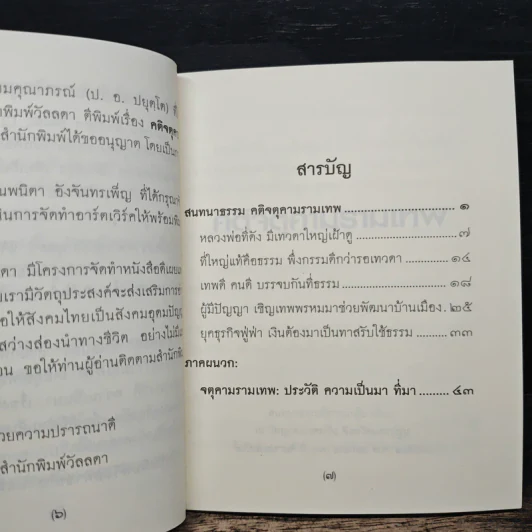 มคุณาภรณ์ (ป. อ. ปยุตฺโต) ที่
พิมพ์วัลลดา ตีพิมพ์เรื่อง คติจตุคา
สำนักพิมพ์ได้ขออนุญาต โดยเป็น
พนิตา อังจันทรเพ็ญ ที่ได้กรุณา
ในการจัดทำอาร์ตเวิร์คให้พร้อมพิม
ดา มีโครงการจัดทำหนังสือดีเผยแ
เรามีวัตถุประสงค์จะส่งเสริมการ
อให้สังคมไทยเป็นสังคมอุดมปัญ
สว่างส่องนำทางชีวิต อย่างไม่มี
อน ขอให้ท่านผู้อ่านติดตามสำนักพิ
วยความปรารถนาดี
สำนักพิมพ์วัลลดา
(๖)
สารบัญ
สนทนาธรรม คติจตุคามรามเทพ ๑
หลวงพ่อที่ดัง มีเทวดาใหญ่เฝ้าดู ๗
ที่ใหญ่แท้คือธรรม พึ่งกรรมดีกว่ารอเทวดา ๑๔
เทพดี คนดี บรรจบกันที่ธรรม ๑๘
ผู้มีปัญญา เชิญเทพพรหมมาช่วยพัฒนาบ้านเมือง. ๒๕
ยุคธุรกิจฟู่ฟ่า เงินต้องมาเป็นทาสรับใช้ธรรม ๓๓
ภาคผนวก:
จตุคามรามเทพ: ประวัติ ความเป็นมา ที่มา ๔๓
(๗)